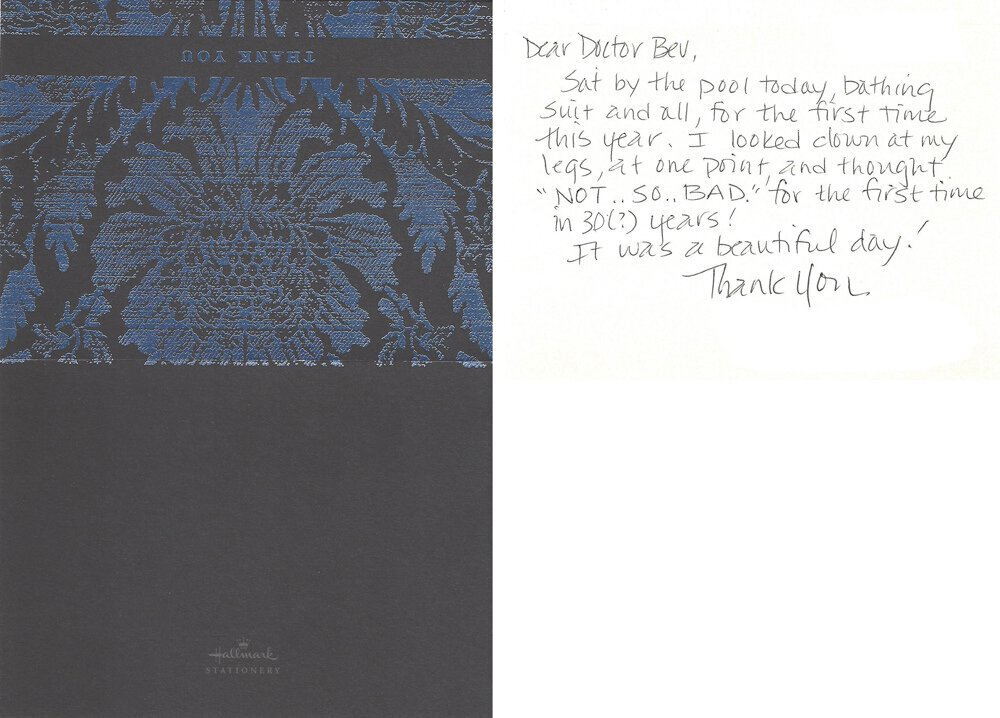 THANK YOU
Hallmark
STATIONERY
Dear Doctor Bev,
Sat by the pool today, bathing
suit and all, for the first time
this year. I looked down at my
legs, at one point, and thought
"NOT..SO..BAD." for the first time
in 30(?) years!
It was a beautiful day!
Thank You